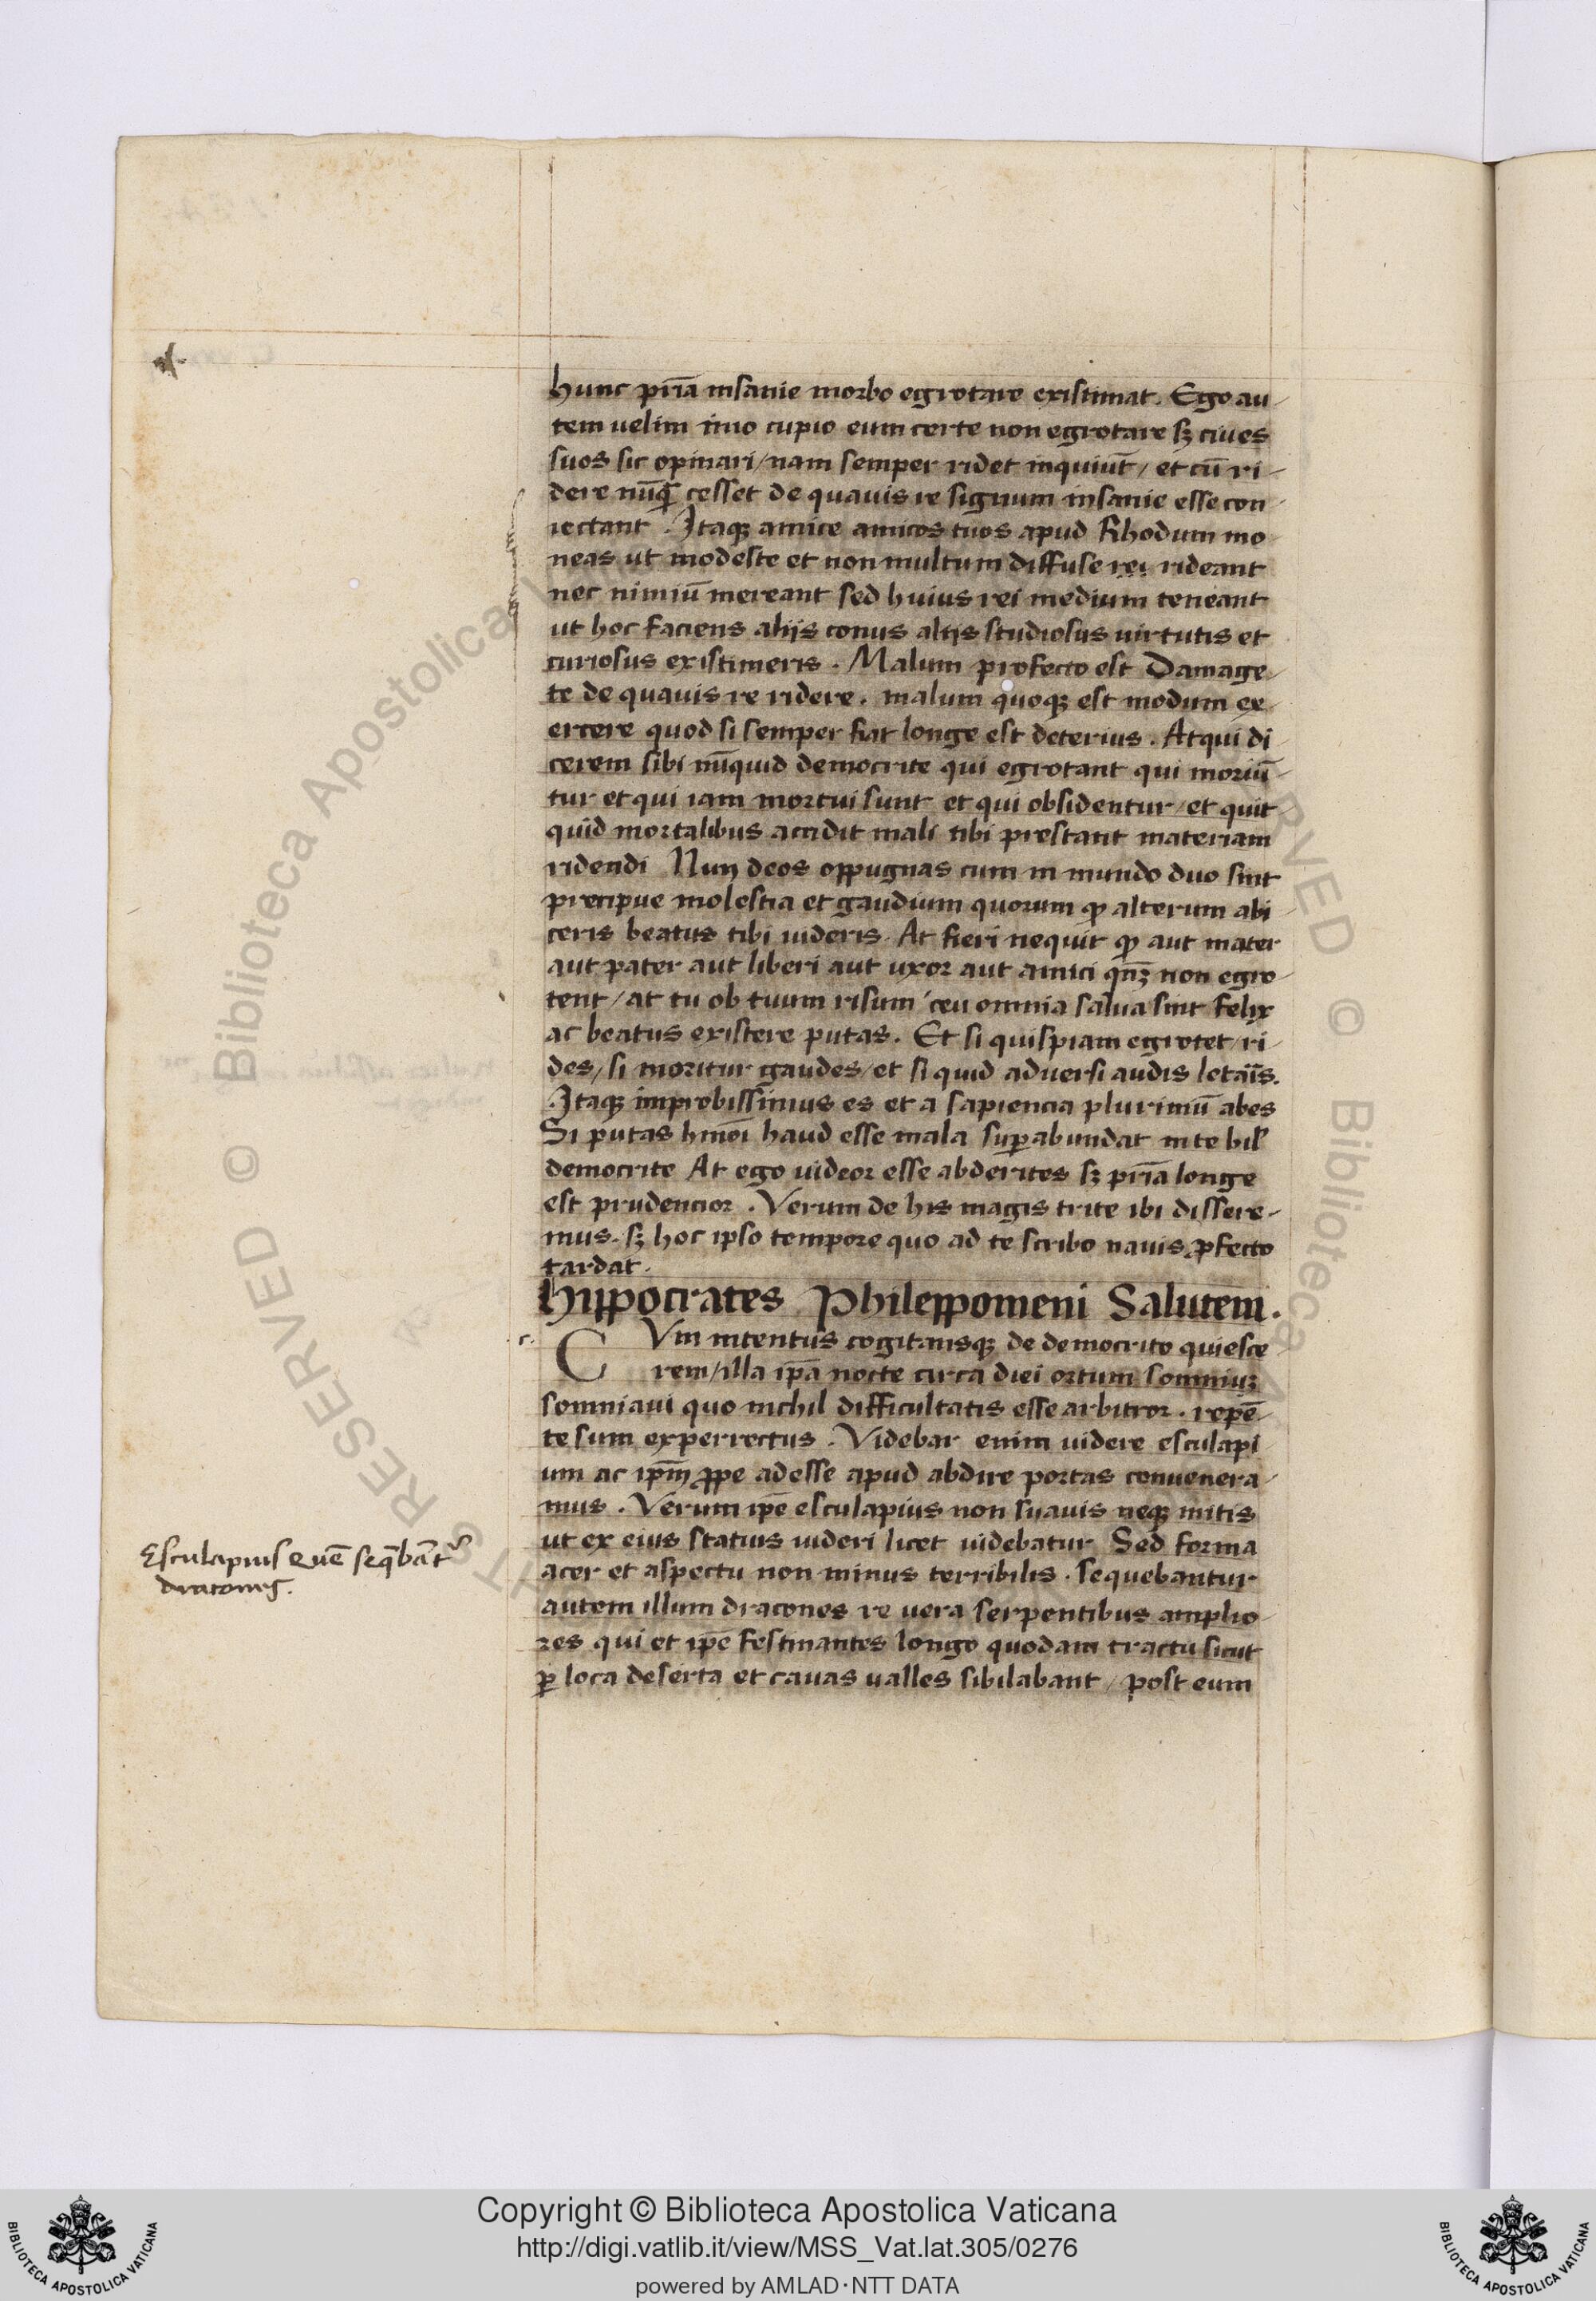 hunc pr̄ia insanie morbo egrotare existimat. Ego au-
tem uelim imo cupio eum certe non egrotare sꝫ ciues
suos sic opinari/nam semper ridet inquiūt/ et cū ri-
dere nūꝙ̄ cesset de quauis re signum insanie esse con-
iectant. Itaqꝫ amice amicos tuos apud Rhodum mo-
neas ut modeste et non multum diffuse rei rideant
nec nimiū mereant sed huius rei medium teneant
ut hoc faciens alijs altijs studiosus uirtutis et
curiosus existimeris. Malum profecto est Damage-
te de quauis re ridere. malum quoqꝫ est modum ex-
ercere quod si semper fiat longe est deterius. Atqui di-
cerem sibi nūquid democrite qui egrotant qui moriū-
tur et qui iam mortui sunt et qui obsidentur/et quit-
quid mortalibus accidit mali tibi prestant materiam
ridendi Nun deos oppugnas cum in mundo duo sint
precipue molestia et gaudium quorum ꝙ alterum abi-
ceris beatus tibi uideris. At fieri nequit ꝙ aut mater
aut pater aut liberi aut uxor aut amici qn̄ꝫ non egro-
tent/at tu ob tuum risum ceu omnia salua sint felix
ac beatus existere putas. Et si quispiam egrotet/ri-
des/si moritur gaudes/et si quid aduersi audis letāis.
Itaqꝫ improbissimus es et a sapiencia plurimū abes
Si putas hmōi haud esse mala suꝑabundat in te bil'
democrite At ego uideor esse abderites sꝫ pr̄ia longe
est prudencior. Verum de his magis trite ibi dissere-
mus. sꝫ hoc ipso tempore quo ad te scribo nauis ꝓfecto
tardat.
Hippocrates Phileppomeni Salutem.
c.
CVm intentus cogitansqꝫ de democrito quiesce-
rem/illa ip̄a nocte circa diei ortum somniuꝫ
somniaui quo nichil difficultatis esse arbitror. repē-
te sum experrectus. Videbar enim uidere esculapi-
um ac ip̄m ꝓpe adesse apud abdire portas conuenera-
mus. Verum ip̄e esculapius non suauis neqꝫ mitis
ut ex eius statuis uideri licet uidebatur Sed forma
acer et aspectu non minus terribilis. sequebantur
Esculapius quē seq̄bāt᷑
dracones.
autem illum dracones re uera serpentibus amplio-
res qui et ip̄e festinantes longo quodam tractu sicut
ꝑ loca deserta et cauas ualles sibilabant/post eum
Copyright © Biblioteca Apostolica Vaticana
http://digi.vatlib.it/view/MSS_Vat.lat.305/0276
powered by AMLAD·NTT DATA
BIBLIOTECA APOSTOLICA VATICANA
BIBLIOTECA APOSTOLICA VATICANA